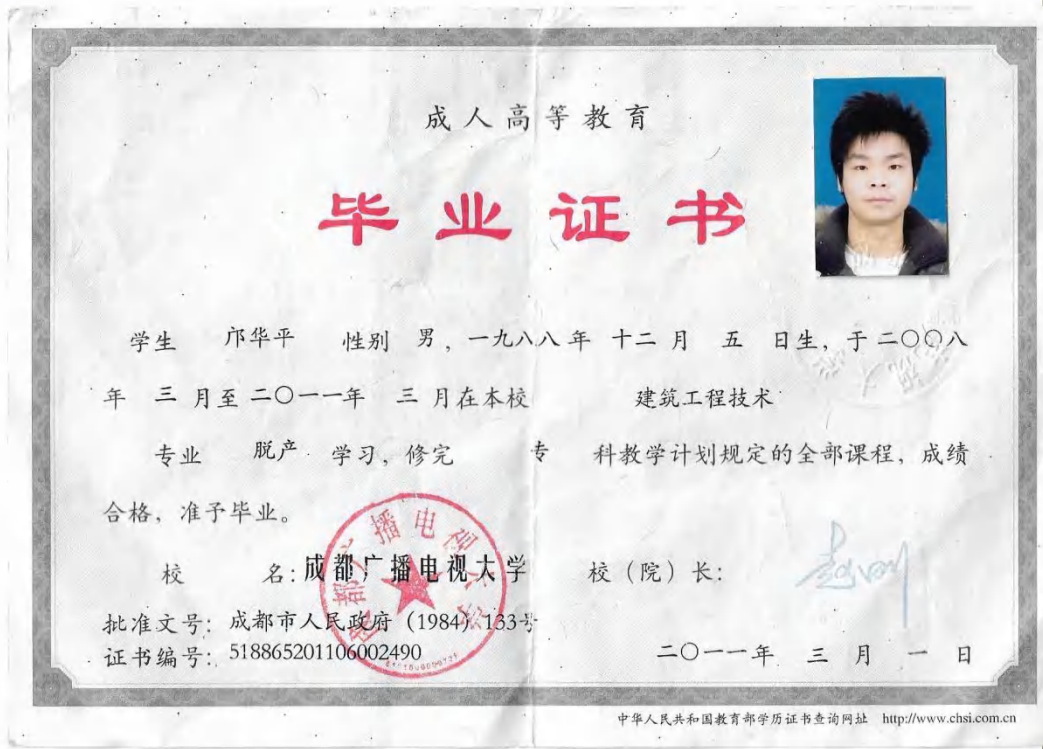 成人高等教育
毕业证书
学生 邝华平 性别 男，一九八八年 十二月 五 日生，于二〇〇八
年 三 月至 二〇一一年 三 月在本校 建筑工程技术
专业 脱产 学习，修完 专 科教学计划规定的全部课程，成绩
合格，准予毕业。
校 名：成都广播电视大学 校（院）长：
批准文号：成都市人民政府（1984）133号
证书编号：518865201106002490
二〇一一年 三 月 一 日
中华人民共和国教育部学历证书查询网址 http://www.chsi.com.cn